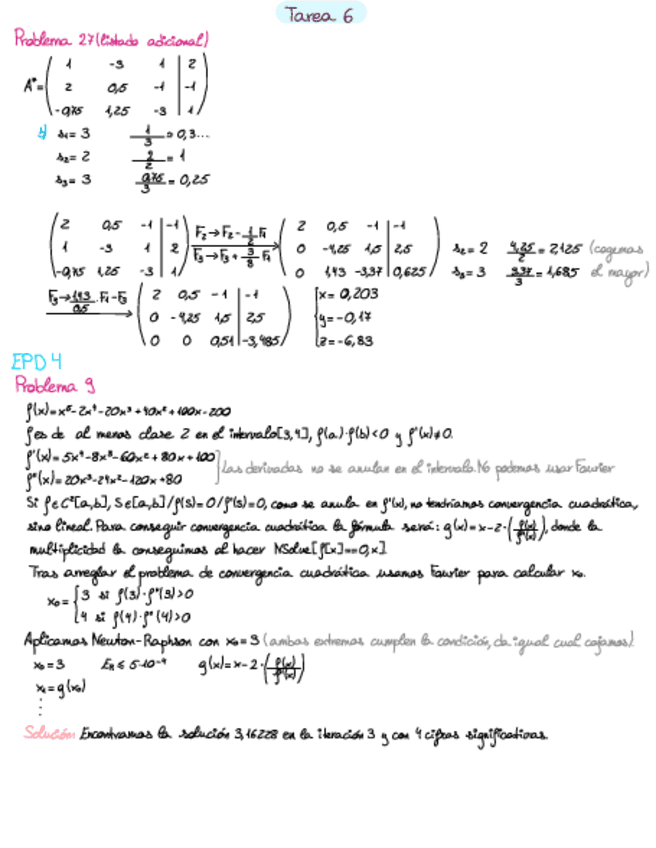 Tarea 6
Problema 27 (listado adicional)
A* = ( 1 -3 1 | 2
2 0,5 -1 | -1
-0,75 1,25 -3 | 1 )
s₁ = 3 1/3 = 0,3...
s₂ = 2 2/2 = 1
s₃ = 3 0,75/3 = 0,25
( 2 0,5 -1 | -1
1 -3 1 | 2
-0,75 1,25 -3 | 1 ) F₂→F₂-1/2F₁ F₃→F₃+3/8F₁ ( 2 0,5 -1 | -1
0 -4,25 1,5 | 2,5
0 1,43 -3,37 | 0,625 ) s₂ = 2 4,25/2 = 2,125 (cogemos
s₃ = 3 3,37/3 = 1,685 el mayor)
F₃→1,43/0,5·F₁-F₃ ( 2 0,5 -1 | -1
0 -4,25 1,5 | 2,5
0 0 0,51 | -3,485 ) x = 0,203
y = -0,17
z = -6,83
EPD 4
Problema 9
f(x) = x⁵ - 2x⁴ - 20x³ + 40x² + 100x - 200
f es de al menos clase 2 en el intervalo [3,4], f(a)·f(b) < 0 y f'(x) ≠ 0.
f'(x) = 5x⁴ - 8x³ - 60x² + 80x + 100
f''(x) = 20x³ - 24x² - 120x + 80
Las derivadas no se anulan en el intervalo. No podemos usar Fourier
Si f∈C²[a,b], S∈[a,b] / f(S) = 0 / f'(S) = 0, como se anula en f'(x), no tendríamos convergencia cuadrática,
sino lineal. Para conseguir convergencia cuadrática la fórmula será: g(x) = x - 2·(f(x)/f'(x)), donde la
multiplicidad la conseguimos al hacer NSolve[f[x]==0,x]
Tras arreglar el problema de convergencia cuadrática usamos Fourier para calcular x₀.
x₀ = { 3 si f(3)·f''(3) > 0
4 si f(4)·f''(4) > 0
Aplicamos Newton-Raphson con x₀ = 3 (ambos extremos cumplen la condición, da igual cual cojamos).
x₀ = 3 E_R ≤ 5·10⁻⁴ g(x) = x - 2·(f(x)/f'(x))
x₁ = g(x₀)
⋮
Solución: Encontramos la solución 3,16228 en la iteración 3 y con 4 cifras significativas.